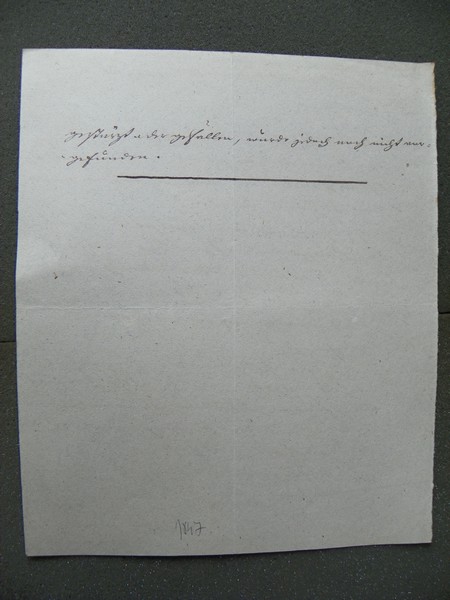 gestürzt oder gefallen, wurde jedoch noch nicht vor-
gefunden.
1847